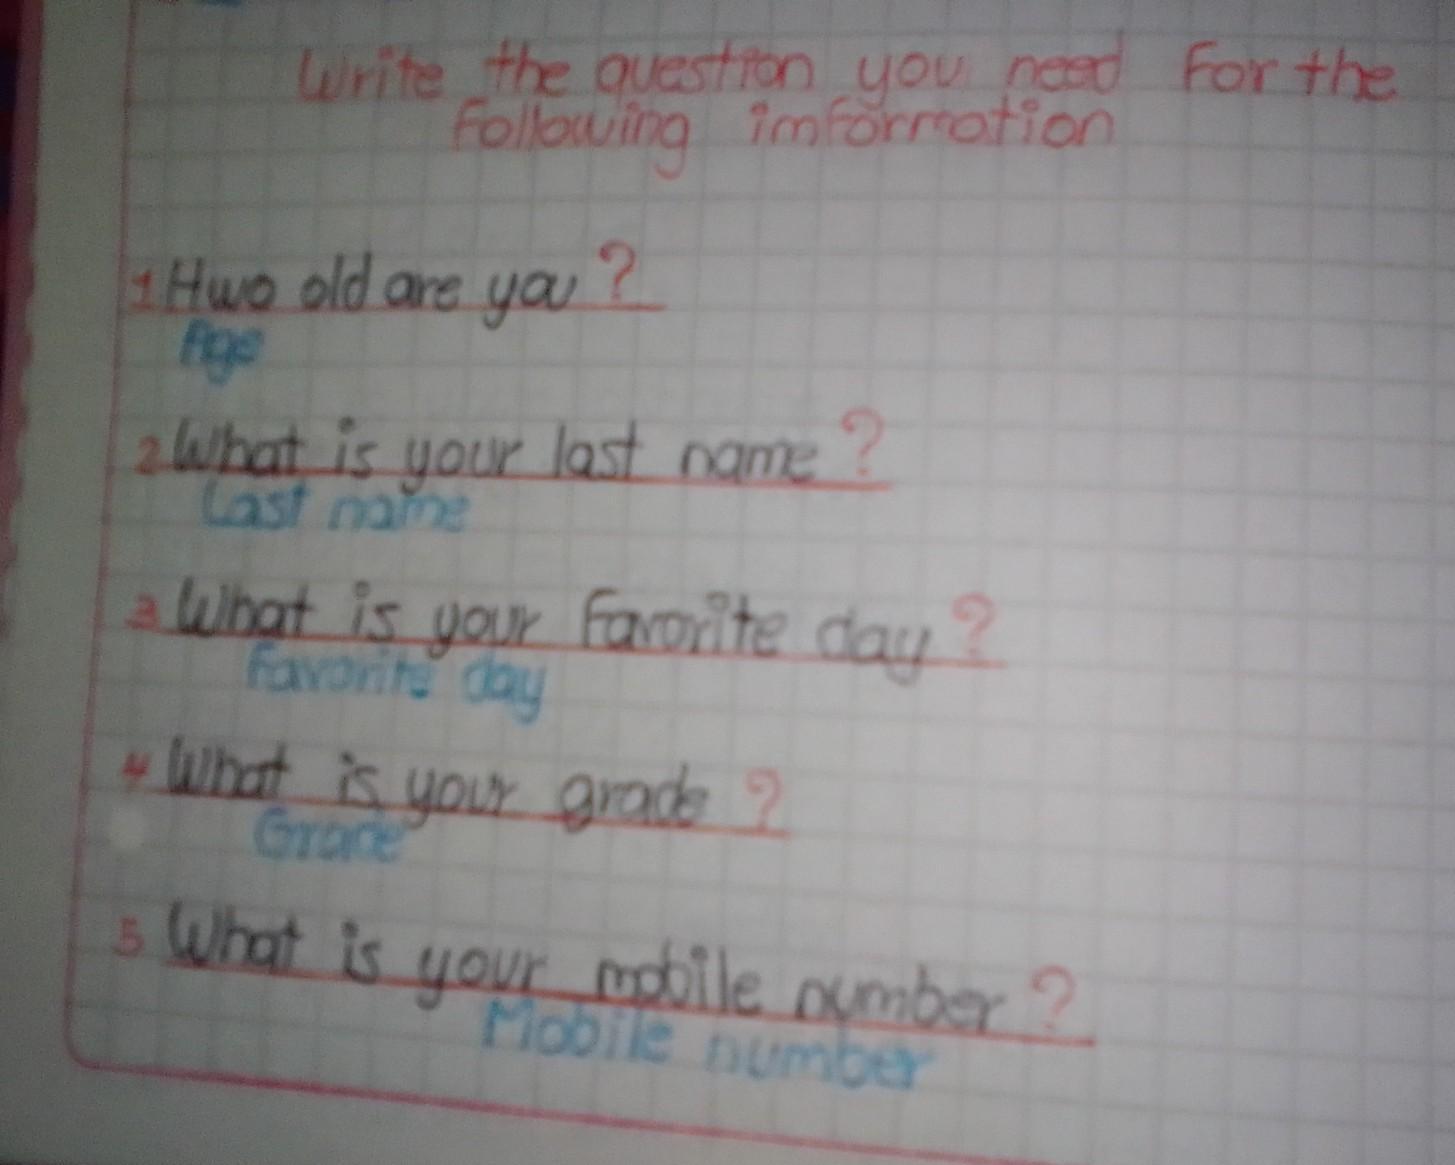 Write the question you need For the
Following imformation
1 Hwo old are you?
Age
2 What is your last name?
Last name
3 What is your Favorite day?
Favorite day
4 What is your grade?
Grade
5 What is your mobile number?
Mobile number